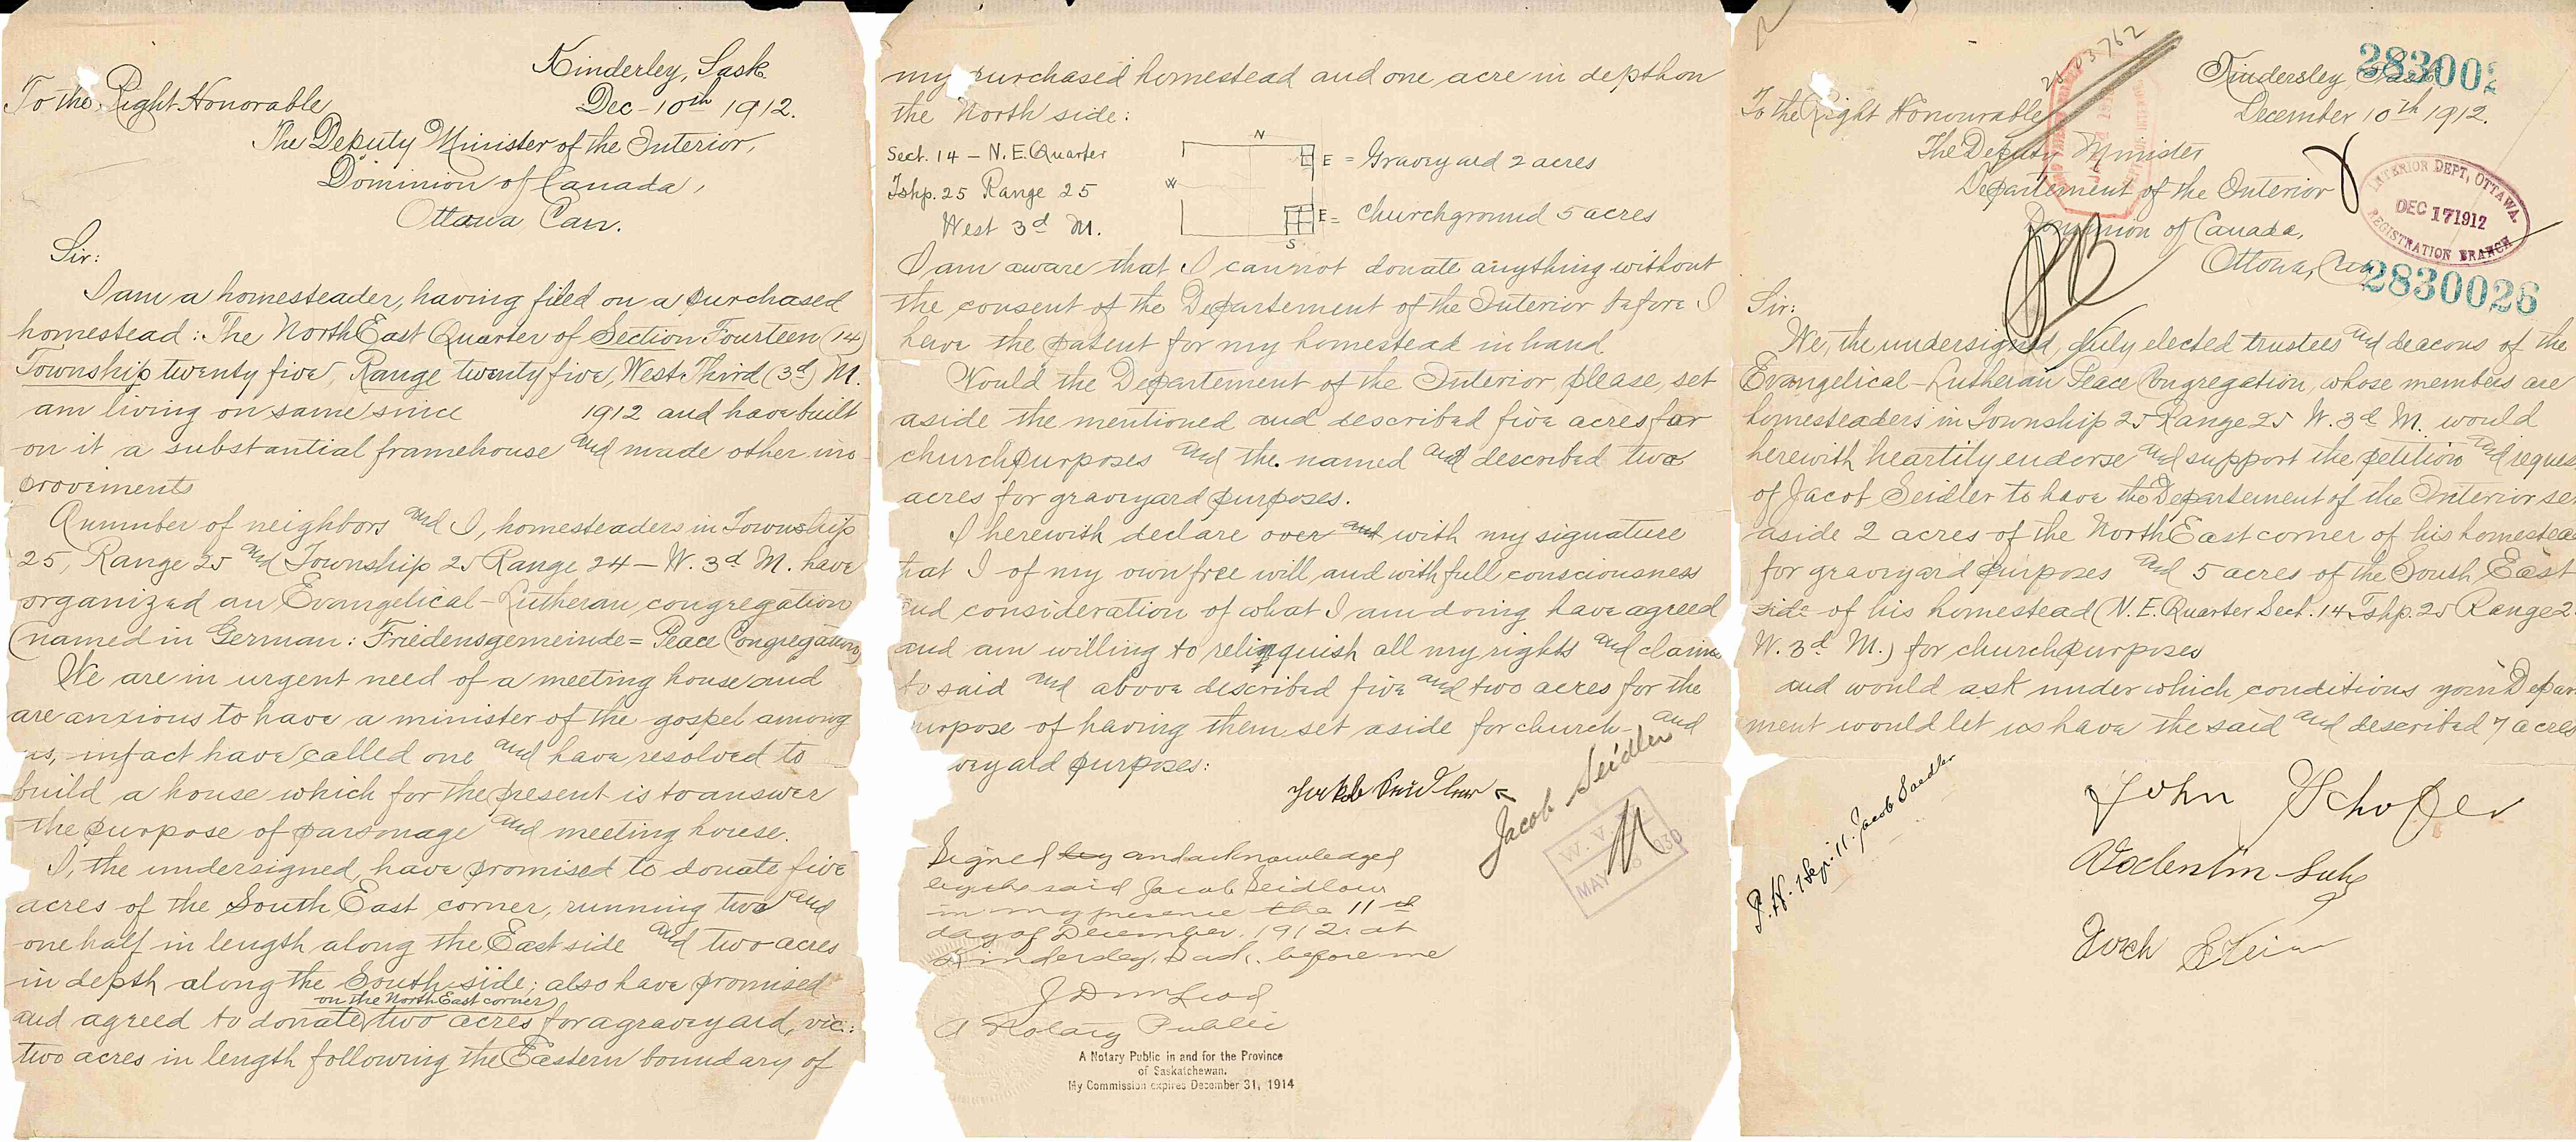 Kinderley, Sask.
To the Right Honorable Dec - 10th 1912.
The Deputy Minister of the Interior,
Dominion of Canada,
Ottawa, Can.
Sir:
I am a homesteader, having filed on a purchased
homestead: The North East Quarter of Section Fourteen (14)
Township twenty five, Range twenty five, West Third (3d) M.
am living on same since 1912 and have built
on it a substantial framehouse and made other im-
provements
A number of neighbors and I, homesteaders in Township
25, Range 25 and Township 25 Range 24 - W. 3d M. have
organized an Evangelical-Lutheran congregation
(named in German: Friedensgemeinde = Peace Congregation)
We are in urgent need of a meeting house and
are anxious to have a minister of the gospel among
us, infact have called one and have resolved to
build a house which for the present is to answer
the purpose of parsonage and meeting house.
I, the undersigned, have promised to donate five
acres of the South East corner, running two and
one half in length along the East side and two acres
in depth along the South side; also have promised
on the North East corner
and agreed to donate two acres for a graveyard, vic:
two acres in length following the Eastern boundary of
my purchased homestead and one acre in depth on
the North side:
N
Sect. 14 - N.E. Quarter E = Graveyard 2 acres
W
Tshp. 25 Range 25
West 3d M. E = Churchground 5 acres
S
I am aware that I cannot donate anything without
the consent of the Departement of the Interior before I
have the patent for my homestead in hand
Would the Departement of the Interior, please, set
aside the mentioned and described five acres for
churchpurposes and the named and described two
acres for graveyard purposes.
I herewith declare over and with my signature
that I of my own free will and with full consciousness
and consideration of what I am doing have agreed
and am willing to relinquish all my rights and claims
to said and above described five and two acres for the
purpose of having them set aside for church- and
veyard purposes:
Jacob Seidler
Signed by and acknowledged
by the said Jacob Seidlour
in my presence the 11th
day of December. 1912. at
Kindersley, Sask. before me
A Notary Public
A Notary Public in and for the Province
of Saskatchewan.
My Commission expires December 31, 1914
W. V.
MAY 1930
2830028
Kindersley, Sask.
To the Right Honourable December 10th 1912.
The Deputy Minister
Departement of the Interior
Dominion of Canada,
Ottawa, Can.
INTERIOR DEPT, OTTAWA.
DEC 17 1912
REGISTRATION BRANCH
2830028
Sir:
We, the undersigned, duly elected trustees and deacons of the
Evangelical-Lutheran Peace Congregation, whose members are
homesteaders in Township 25 Range 25 W. 3d M. would
herewith heartily endorse and support the petition and reques
of Jacob Seidler to have the Departement of the Interior set
aside 2 acres of the North East corner of his homestead
for graveyard purposes and 5 acres of the South East
side of his homestead (N.E. Quarter Sect. 14 Tshp. 25 Range 2
W. 3d M.) for churchpurposes
and would ask under which conditions your Depart
ment would let us have the said and described 7 acres
P.H. 1 Sep. 11. Jacob Saedler
John Schofer
Valentin
Stein